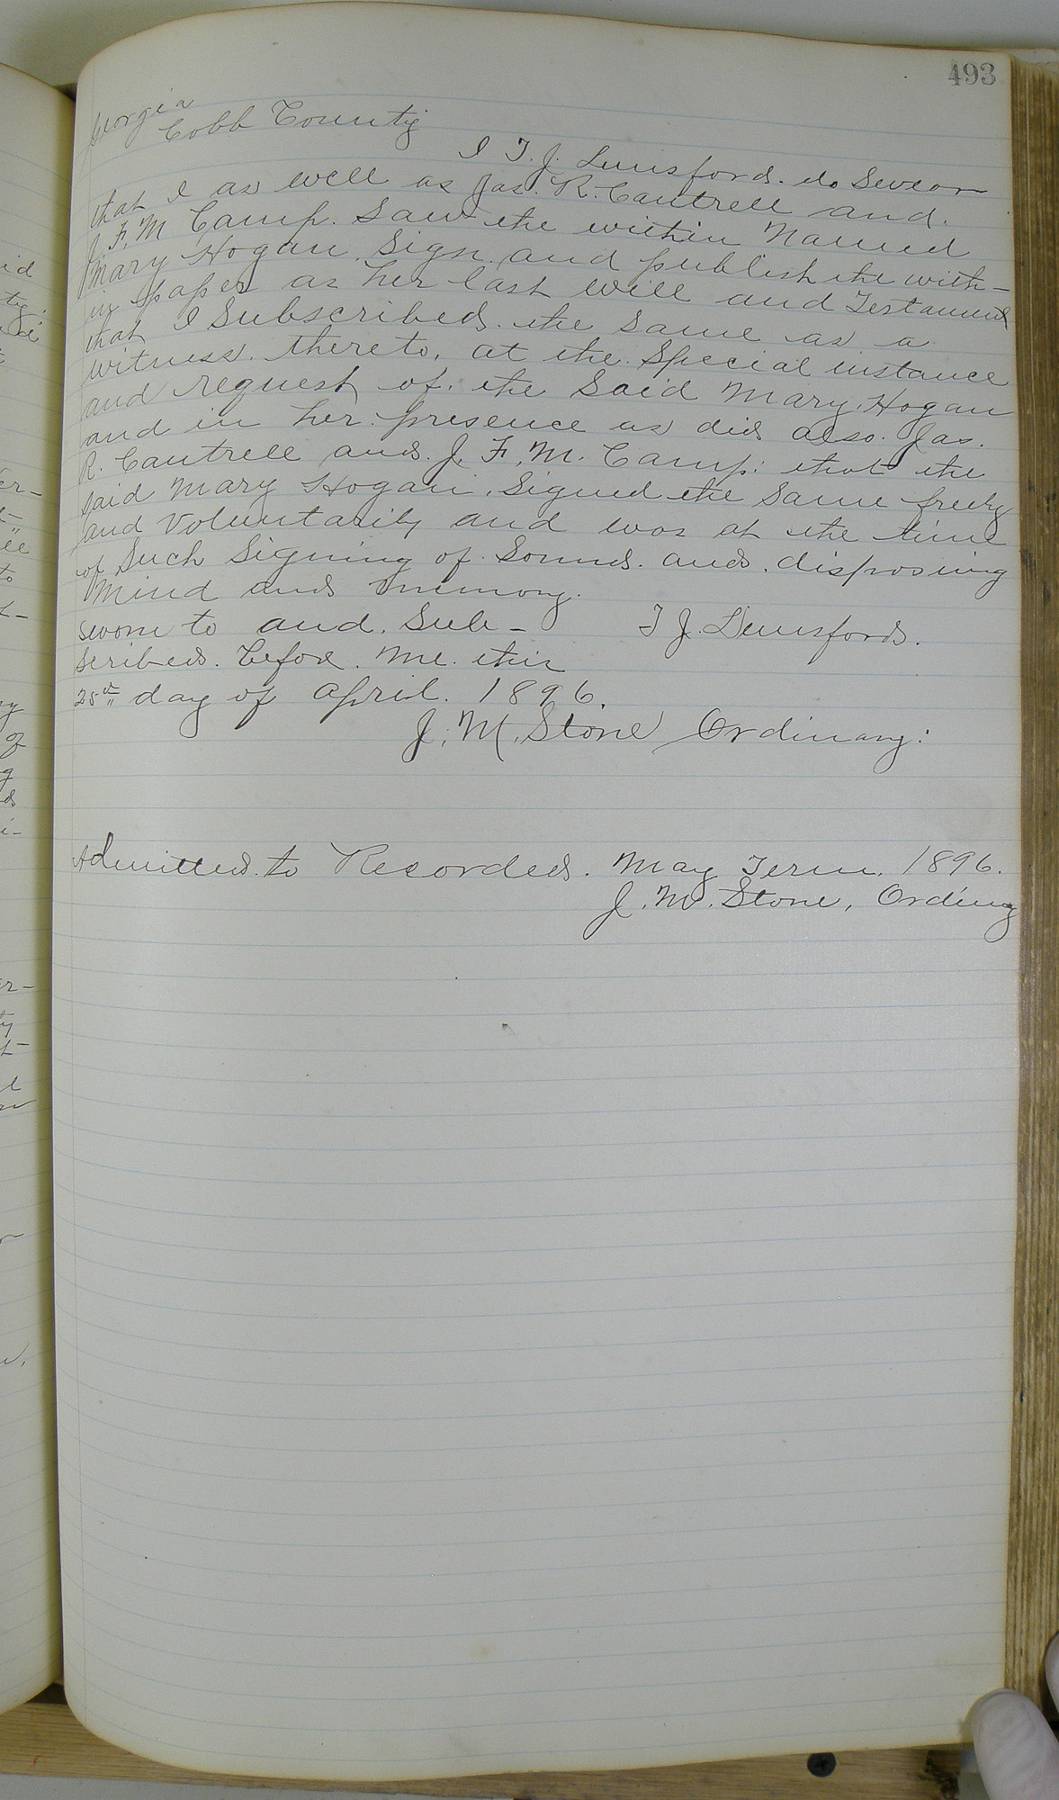 493
Georgia
Cobb County
I T. J. Lunsford. do Swear
that I as well as Jas. R. Cantrell and.
J. F. M Camp. Saw the within Named
Mary Hogan. Sign. and publish the with-
in paper as her last will and Testament
that I Subscribed. the same as a
witness. thereto, at the Special instance
and request of. the Said Mary. Hogan
and in her presence as did also. Jas.
R. Cantrell and. J. F. M. Camp: that the
Said Mary Hogan. Signed the same freely
and Voluntarily and was at the time
of Such Signing of Sound. and. disposing
Mind and Memory.
Sworn to and. Sub- T J. Lunsford.
scribed. before. me. this
25th day of April. 1896.
J. M. Stone Ordinary:
Admitted. to Recorded. May Term. 1896.
J. M. Stone, Ordinry